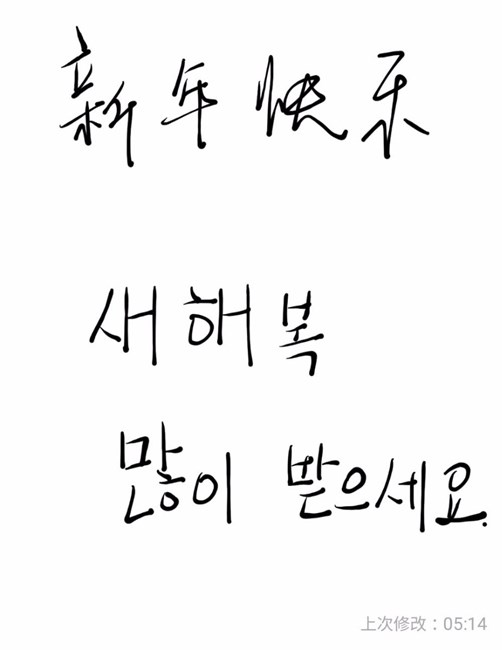 新年快乐
새해복
많이 받으세요.
上次修改：05:14